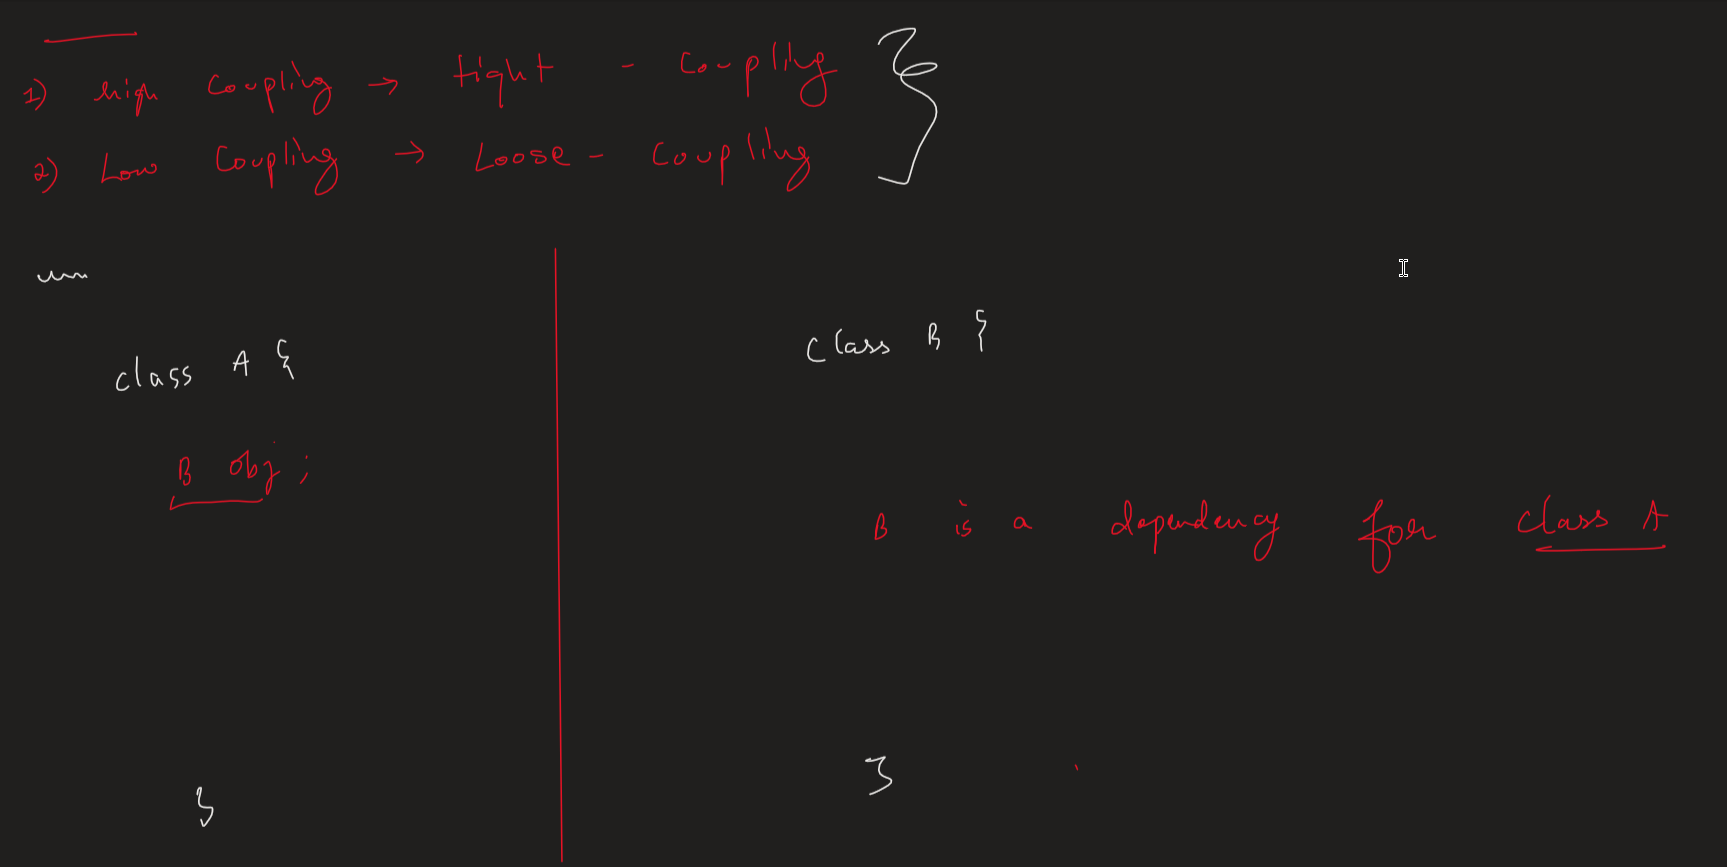 1) high coupling → tight - coupling
2) Low coupling → Loose - coupling
class A {
B obj;
}
class B {
B is a dependency for class A
}